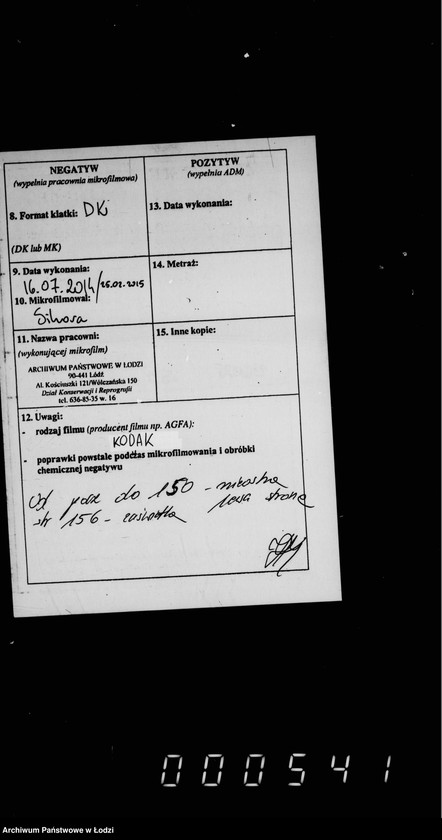 NEGATYW
(wypełnia pracownia mikrofilmowa)
8. Format klatki: DKj
(DK lub MK)
POZYTYW
(wypełnia ADM)
13. Data wykonania:
9. Data wykonania:
16.07.2014/26.02.2015
10. Mikrofilmował:
Sikora
14. Metraż:
11. Nazwa pracowni:
(wykonującej mikrofilm)
ARCHIWUM PAŃSTWOWE W ŁODZI
90-441 Łódź
Al. Kościuszki 121/Wólczańska 150
Dział Konserwacji i Reprografii
tel. 636-85-35 w. 16
15. Inne kopie:
12. Uwagi:
- rodzaj filmu (producent filmu np. AGFA):
KODAK
- poprawki powstałe podczas mikrofilmowania i obróbki
chemicznej negatywu
od do 150 - nieostra
lewa strona
str 156 -
000541
Archiwum Państwowe w Łodzi